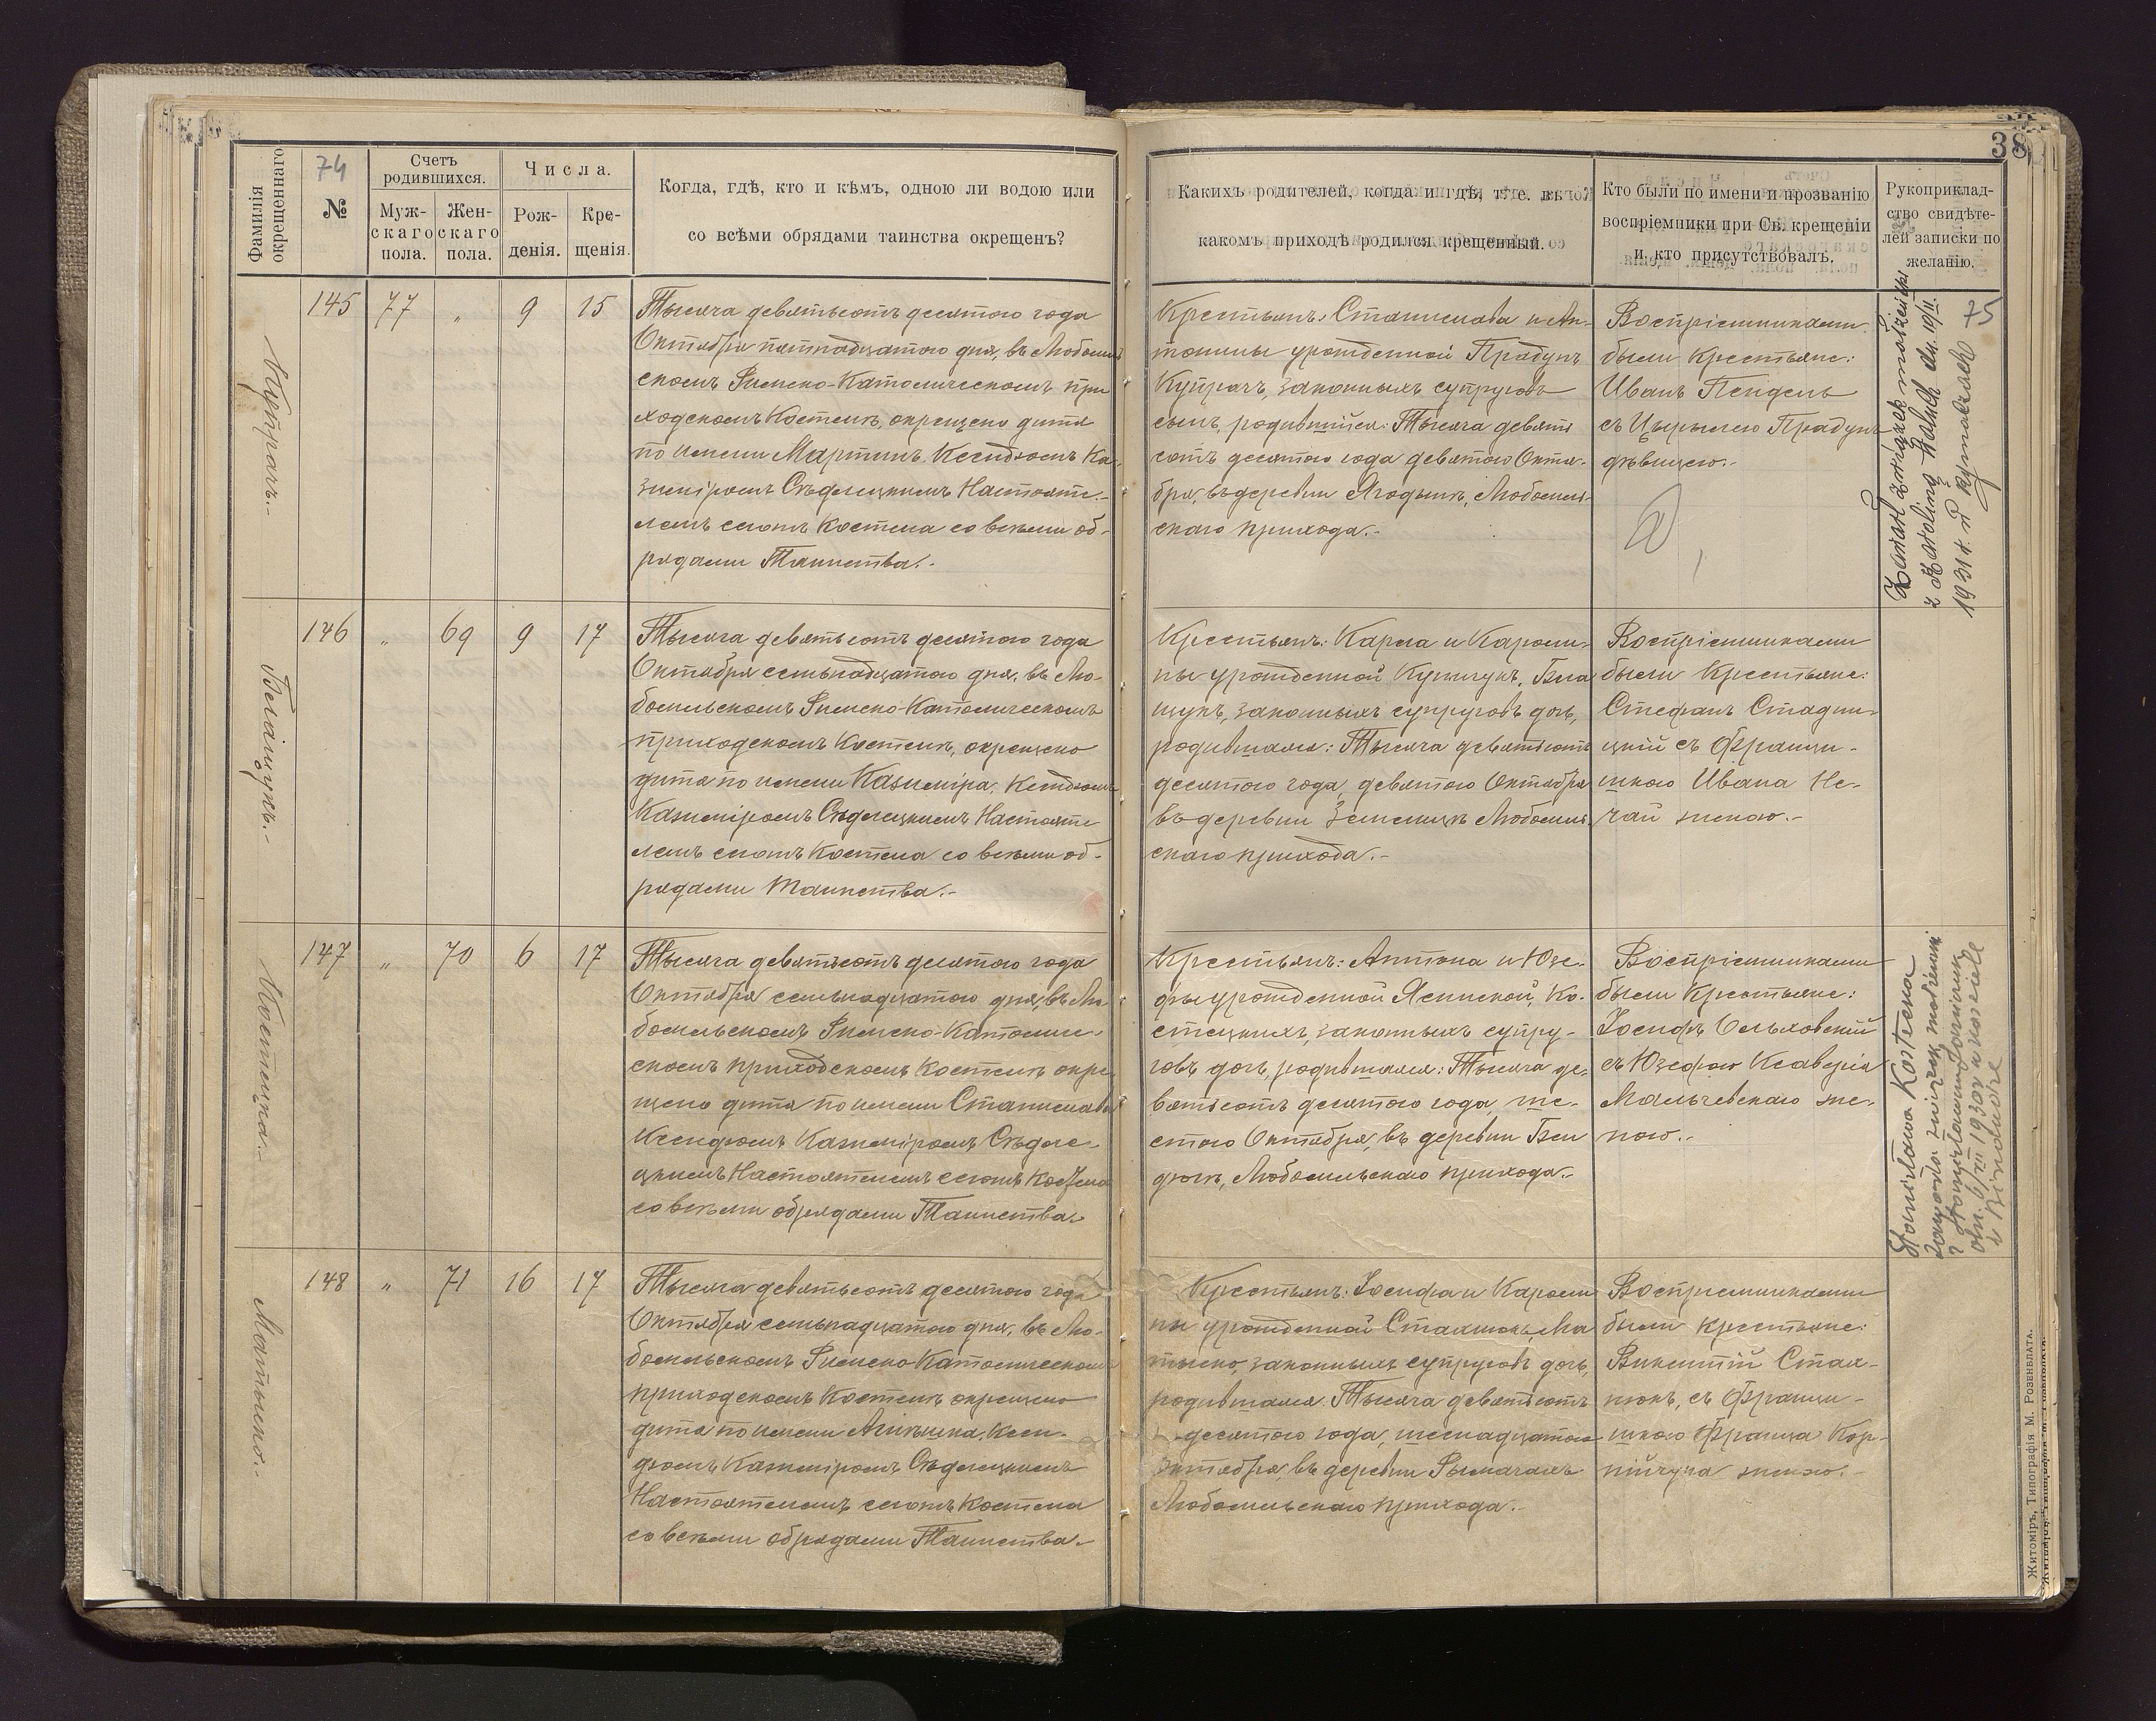 74
38
75
Фамилія окрещеннаго
№
Счетъ родившихся.
Муж- скаго пола.
Жен- скаго пола.
Числа.
Рож- денія.
Кре- щенія.
Когда, гдѣ, кто и кѣмъ, одною ли водою или
со всѣми обрядами таинства окрещенъ?
Какихъ родителей, когда и гдѣ, т. е. въ
какомъ приходѣ родился крещенный.
Кто были по имени и прозванію
воспріемники при Св. крещеніи
и кто присутствовалъ.
Рукоприклад-
ство свидѣте-
лей записки по
желанію.
Купрачъ.-
145 77 " 9 15
Тысяча девятьсотъ десятого года
Октября пятнадцатого дня, въ Любомль
скомъ Римско-Католическомъ при
ходскомъ Костелѣ, окрещено дитя
по имени Мартинъ. Ксендзомъ Ка-
зиміромъ Сѣдлецкимъ Настояте-
лемъ сего Костела со всѣми об-
рядами Таинства.-
Крестьянъ: Станислава и Ан-
тонины урожденной Прадунъ
Купрачъ, законныхъ супруговъ
сынъ, родившійся: Тысяча девять
сотъ десятого года девятого Октя-
бря, въ деревни Ягодынѣ, Любомль-
скаго прихода.-
Воспріемниками
были Крестьяне:
Иванъ Пендель
съ Цырылею Прадунъ
дѣвицею.-
Zawarł związek małżeński
z Karoliną
1931 r. w Rymaczach
146 " 69 9 17
Тысяча девятьсотъ десятого года
Октября семьнадцатого дня, въ Лю-
бомльскомъ Римско-Католическомъ
приходскомъ Костелѣ, окрещено
дитя по имени Казиміра. Ксендзомъ
Казиміромъ Сѣдлецкимъ Настояте
лемъ сего Костела со всѣми об-
рядами Таинства.-
Крестьянъ: Карла и Кароли-
ны урожденной
законныхъ супруговъ дочь,
родившаяся: Тысяча девятьсотъ
десятого года, девятого Октября
въ деревни Земелицѣ Любомль-
скаго прихода.-
Воспріемниками
были Крестьяне:
Стефанъ Стадни-
цкій съ Франци-
шкою Ивана Не-
чай женою.-
Костецка.-
147 " 70 6 17
Тысяча девятьсотъ десятого года
Октября семьнадцатого дня, въ Лю-
бомльскомъ Римско-Католиче-
скомъ приходскомъ Костелѣ окре
щено дитя по имени Станислава
Ксендзомъ Казиміромъ Сѣдле-
цкимъ Настоятелемъ сего Костела
со всѣми обрядами Таинства.-
Крестьянъ: Антона и Юзе-
фы урожденной Ясинской, Ко-
стецкихъ, законныхъ супру-
говъ дочь, родившаяся: Тысяча де-
вятьсотъ десятого года, ше-
стого Октября, въ деревни Бин
дюгѣ, Любомльскаго прихода.-
Воспріемниками
были Крестьяне:
Іосифъ Ольховскій
съ Юзефою Ксаверія
Мальчевскаго же-
ною.-
Stanisława Kostecka
zawarła związek małżeński
z Stanisławem
dn. 6/III 1930 r. w kościele
w Binduże
Матыско.-
148 " 71 16 17
Тысяча девятьсотъ десятого года
Октября семьнадцатого дня, въ Лю-
бомльскомъ Римско-Католическомъ
приходскомъ Костелѣ окрещено
дитя по имени Агнѣшка. Ксен-
дзомъ Казиміромъ Сѣдлецкимъ
Настоятелемъ сего Костела
со всѣми обрядами Таинства.-
Крестьянъ: Іосифа и Кароли
ны урожденной Стахнюкъ, Ма
тыско, законныхъ супруговъ дочь,
родившаяся: Тысяча девятьсотъ
десятого года, шеснадцатого
Октября, въ деревни Рымачахъ
Любомльскаго прихода.-
Воспріемниками
были крестьяне:
Викентій Стах-
нюкъ, съ Франци-
шкою Франца Кор-
нійчука женою.-
Житоміръ, Типографія М. Розенблата.